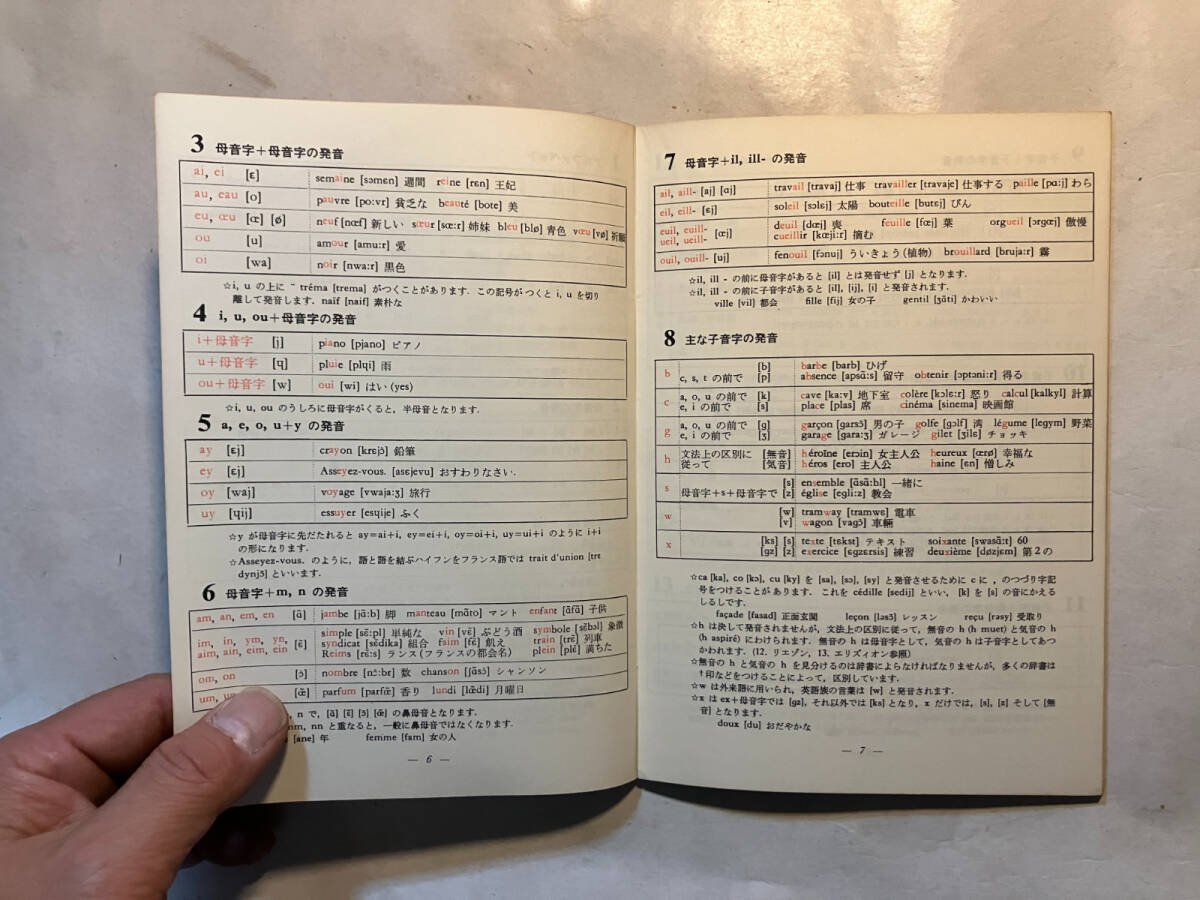 3 母音字+母音字の発音
ai, ei [ɛ] semaine [səmɛn] 週間 reine [rɛn] 王妃
au, eau [o] pauvre [po:vr] 貧乏な beauté [bote] 美
eu, œu [œ] [ø] neuf [nœf] 新しい sœur [sœ:r] 姉妹 bleu [blø] 青色 vœu [vø] 祈願
ou [u] amour [amu:r] 愛
oi [wa] noir [nwa:r] 黒色
☆i, u の上に ¨ tréma [trema] がつくことがあります. この記号がつくと i, u を切り
離して発音します. naïf [naif] 素朴な
4 i, u, ou+母音字の発音
i+母音字 [j] piano [pjano] ピアノ
u+母音字 [ɥ] pluie [plɥi] 雨
ou+母音字 [w] oui [wi] はい (yes)
☆i, u, ou のうしろに母音字がくると, 半母音となります.
5 a, e, o, u+y の発音
ay [ɛj] crayon [krɛjɔ̃] 鉛筆
ey [ɛj] Asseyez-vous. [asɛjevu] おすわりなさい.
oy [waj] voyage [vwaja:ʒ] 旅行
uy [ɥij] essuyer [esɥije] ふく
☆y が母音字に先だたれると ay=ai+i, ey=ei+i, oy=oi+i, uy=ui+i のように i+i
の形になります.
☆Asseyez-vous. のように, 語と語を結ぶハイフンをフランス語では trait d'union [trɛ
dynjɔ̃] といいます.
6 母音字+m, n の発音
am, an, em, en [ɑ̃] jambe [ʒɑ̃:b] 脚 manteau [mɑ̃to] マント enfant [ɑ̃fɑ̃] 子供
im, in, ym, yn, aim, ain, eim, ein [ɛ̃] simple [sɛ̃:pl] 単純な vin [vɛ̃] ぶどう酒 symbole [sɛ̃bɔl] 象徴
syndicat [sɛ̃dika] 組合 faim [fɛ̃] 飢え train [trɛ̃] 列車
Reims [rɛ̃:s] ランス(フランスの都会名) plein [plɛ̃] 満ちた
om, on [ɔ̃] nombre [nɔ̃:br] 数 chanson [ʃɑ̃sɔ̃] シャンソン
um, un [œ̃] parfum [parfœ̃] 香り lundi [lœ̃di] 月曜日
, n で, [ɑ̃] [ɛ̃] [ɔ̃] [œ̃] の鼻母音となります.
nm, nn と重なると, 一般に鼻母音ではなくなります.
[ane] 年 femme [fam] 女の人
— 6 —
7 母音字+il, ill- の発音
ail, aill- [aj] [ɑj] travail [travaj] 仕事 travailler [travaje] 仕事する paille [pɑ:j] わら
eil, eill- [ɛj] soleil [sɔlɛj] 太陽 bouteille [butɛj] びん
euil, euill- ueil, ueill- [œj] deuil [dœj] 喪 feuille [fœj] 葉 orgueil [ɔrgœj] 傲慢
cueillir [kœji:r] 摘む
ouil, ouill- [uj] fenouil [fənuj] ういきょう(植物) brouillard [bruja:r] 霧
☆il, ill - の前に母音字があると [il] とは発音せず [j] となります.
☆il, ill - の前に子音字があると [il], [ij], [i] と発音されます.
ville [vil] 都会 fille [fij] 女の子 gentil [ʒɑ̃ti] かわいい
8 主な子音字の発音
b [b] barbe [barb] ひげ
c, s, t の前で [p] absence [apsɑ̃:s] 留守 obtenir [ɔptəni:r] 得る
c a, o, u の前で [k] cave [ka:v] 地下室 colère [kɔlɛ:r] 怒り calcul [kalkyl] 計算
e, i の前で [s] place [plas] 席 cinéma [sinema] 映画館
g a, o, u の前で [g] garçon [garsɔ̃] 男の子 golfe [gɔlf] 湾 légume [legym] 野菜
e, i の前で [ʒ] garage [gara:ʒ] ガレージ gilet [ʒilɛ] チョッキ
h 文法上の区別に [無音] héroïne [erɔin] 女主人公 heureux [œrø] 幸福な
従って [気音] héros [ero] 主人公 haine [ɛn] 憎しみ
s [s] ensemble [ɑ̃sɑ̃:bl] 一緒に
母音字+s+母音字で [z] église [egli:z] 教会
w [w] tramway [tramwɛ] 電車
[v] wagon [vagɔ̃] 車輌
x [ks] [s] texte [tɛkst] テキスト soixante [swasɑ̃:t] 60
[gz] [z] exercice [ɛgzɛrsis] 練習 deuxième [døzjɛm] 第2の
☆ca [ka], co [kɔ], cu [ky] を [sa], [sɔ], [sy] と発音させるために c に ¸ のつづり字記
号をつけることがあります. これを cédille [sedij] といい, [k] を [s] の音にかえる
しるしです.
façade [fasad] 正面玄関 leçon [ləsɔ̃] レッスン reçu [rəsy] 受取り
☆h は決して発音されませんが, 文法上の区別に従って, 無音の h (h muet) と気音の h
(h aspiré) にわけられます. 無音の h は母音字として, 気音の h は子音字としてあつ
かわれます. (12. リエゾン, 13. エリズィオン参照)
☆無音の h と気音の h を見分けるのは辞書によらなければなりませんが, 多くの辞書は
†印などをつけることによって, 区別しています.
☆w は外来語に用いられ, 英語族の言葉は [w] と発音されます.
☆x は ex+母音字では [gz], それ以外では [ks] となり, x だけでは, [s], [z] そして [無
音] となります.
doux [du] おだやかな
— 7 —